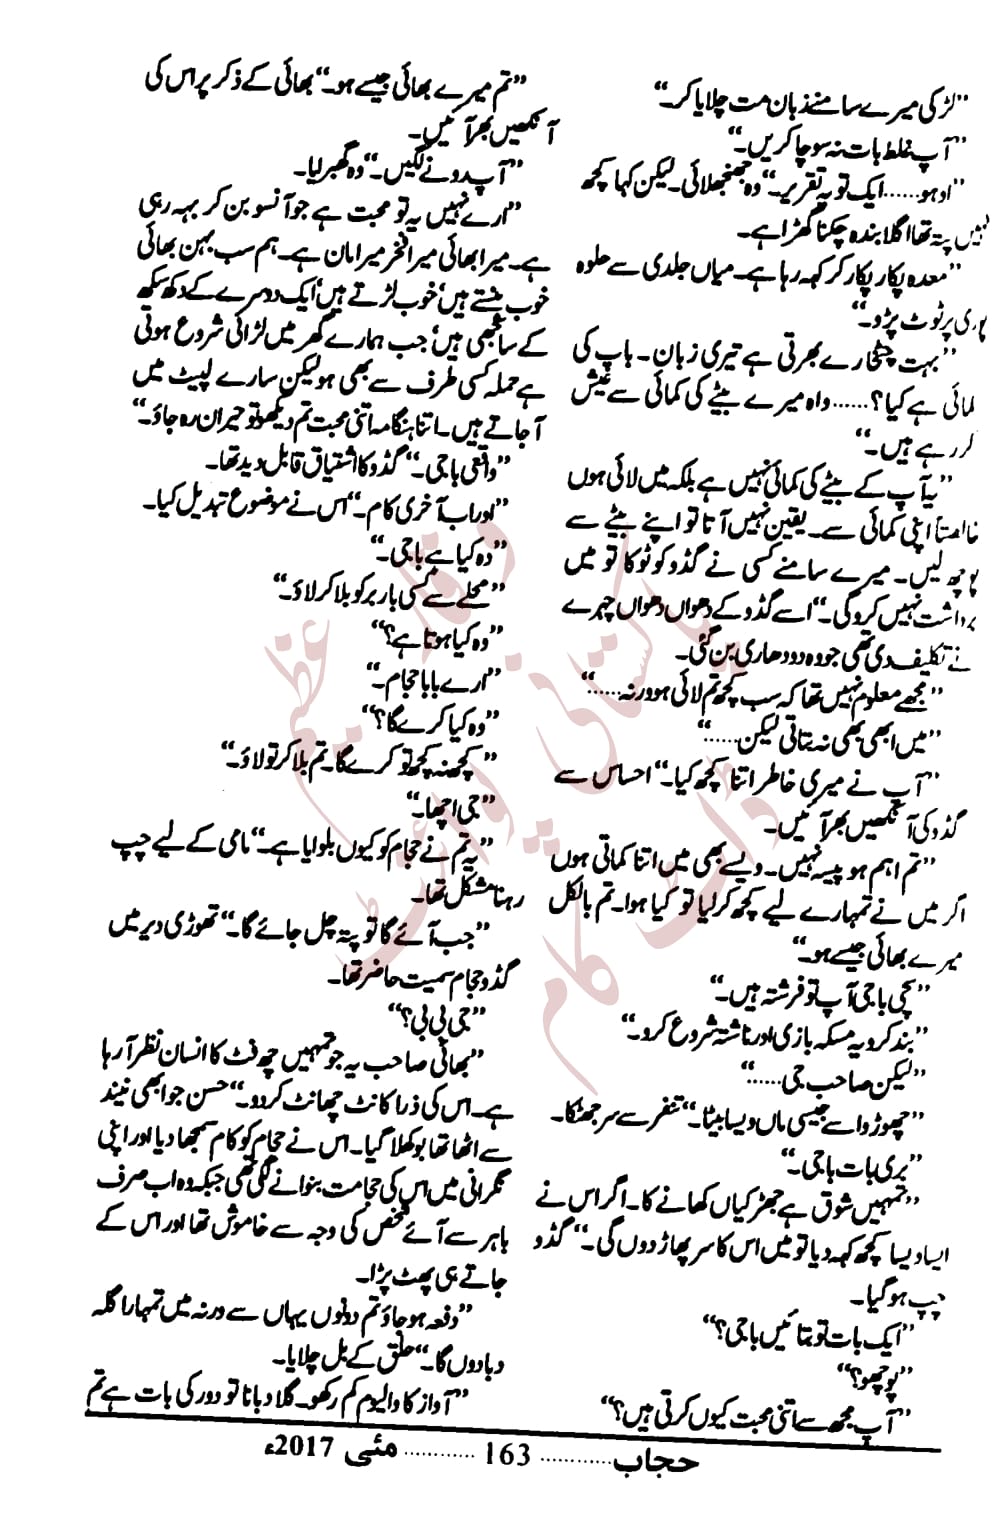 ”لڑکی میرے سامنے زبان مت چلایا کر۔“
”آپ غلط بات نہ سوچا کریں۔“
”اوہو......ایک تو یہ تقریر۔“ وہ جھنجھلائی۔ لیکن کہا کچھ
نہیں پتہ تھا اگلا بندہ چکنا گھڑا ہے۔
”معدہ پکار پکار کر کہہ رہا ہے۔ میاں جلدی سے حلوہ
پوری پر ٹوٹ پڑو۔“
”بہت چٹخارے بھرتی ہے تیری زبان۔ باپ کی
کمائی ہے کیا؟...... واہ میرے بیٹے کی کمائی سے عیش
کر رہے ہیں۔“
”یہ آپ کے بیٹے کی کمائی نہیں ہے بلکہ میں لائی ہوں
خالصتاً اپنی کمائی سے۔ یقین نہیں آتا تو اپنے بیٹے سے
پوچھ لیں۔ میرے سامنے کسی نے گڈو کو ٹوکا تو میں
برداشت نہیں کروگی۔“ اسے گڈو کے دھواں دھواں چہرے
نے تکلیف دی تھی جو وہ دودھاری بن گئی۔
”مجھے معلوم نہیں تھا کہ سب کچھ تم لائی ہو ورنہ......“
”میں ابھی بھی نہ بتاتی لیکن......“
”آپ نے میری خاطر اتنا کچھ کیا۔“ احساس سے
گڈو کی آنکھیں بھر آئیں۔
”تم اہم ہو پیسہ نہیں۔ ویسے بھی میں اتنا کماتی ہوں
اگر میں نے تمہارے لیے کچھ کرلیا تو کیا ہوا۔ تم بالکل
میرے بھائی جیسے ہو۔“
”سچی باجی آپ تو فرشتہ ہیں۔“
”بند کرو یہ مسکہ بازی اور ناشتہ شروع کرو۔“
”لیکن صاحب جی......“
”چھوڑو اسے جیسی ماں ویسا بیٹا۔“ تنفر سے سر جھٹکا۔
”بری بات باجی۔“
”تمہیں شوق ہے جھڑکیاں کھانے کا۔ اگر اس نے
ایسا ویسا کچھ کہہ دیا تو میں اس کا سر پھاڑ دوں گی۔“ گڈو
چپ ہوگیا۔
”ایک بات تو بتائیں باجی؟“
”پوچھو؟“
”آپ مجھ سے اتنی محبت کیوں کرتی ہیں؟“
”تم میرے بھائی جیسے ہو۔“ بھائی کے ذکر پر اس کی
آنکھیں بھر آئیں۔
”آپ رونے لگیں۔“ وہ گھبرایا۔
”ارے نہیں یہ تو محبت ہے جو آنسو بن کر بہہ رہی
ہے۔ میرا بھائی میرا فخر میرا مان ہے۔ ہم سب بہن بھائی
خوب ہنستے ہیں‘ خوب لڑتے ہیں‘ ایک دوسرے کے دکھ سکھ
کے سانجھی ہیں‘ جب ہمارے گھر میں لڑائی شروع ہوتی
ہے حملہ کسی طرف سے بھی ہو لیکن سارے لپیٹ میں
آجاتے ہیں۔ اتنا ہنگامہ اتنی محبت تم دیکھو تو حیران رہ جاؤ۔“
”واقعی باجی۔“ گڈو کا اشتیاق قابل دید تھا۔
”اور اب آخری کام۔“ اس نے موضوع تبدیل کیا۔
”وہ کیا ہے باجی۔“
”محلے سے کسی باربر کو بلا کر لاؤ۔“
”وہ کیا ہوتا ہے؟“
”ارے بابا حجام۔“
”وہ کیا کرے گا؟“
”کچھ نہ کچھ تو کرے گا۔ تم بلا کر تو لاؤ۔“
”جی اچھا۔“
”یہ تم نے حجام کو کیوں بلوایا ہے۔“ مامی کے لیے چپ
رہنا مشکل تھا۔
”جب آئے گا تو پتہ چل جائے گا۔“ تھوڑی دیر میں
گڈو حجام سمیت حاضر تھا۔
”جی بی بی؟“
”بھائی صاحب یہ جو تمہیں چھ فٹ کا انسان نظر آرہا
ہے۔ اس کی ذرا کانٹ چھانٹ کردو۔“ حسن جو ابھی نیند
سے اٹھا تھا بوکھلا گیا۔ اس نے حجام کو کام سمجھا دیا اور اپنی
نگرانی میں اس کی حجامت بنوانے لگی تھی جبکہ وہ اب صرف
باہر سے آئے شخص کی وجہ سے خاموش تھا اور اس کے
جاتے ہی پھٹ پڑا۔
”دفعہ ہوجاؤ تم دونوں یہاں سے ورنہ میں تمہارا گلہ
دبا دوں گا۔“ حلق کے بل چلایا۔
”آواز کا والیوم کم رکھو۔ گلا دبانا تو دور کی بات ہے تم
حجاب ............ 163 ............ مئی 2017ء
پاکستانی پوائنٹ ڈاٹ کام
وقار عظیم